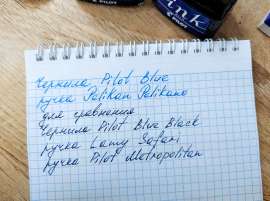 ink
Чернила Pilot Blue
ручка Pelikan Pelikano
для сравнения
Чернила Pilot Blue Black
ручка Lamy Safari
ручка Pilot Metropolitan